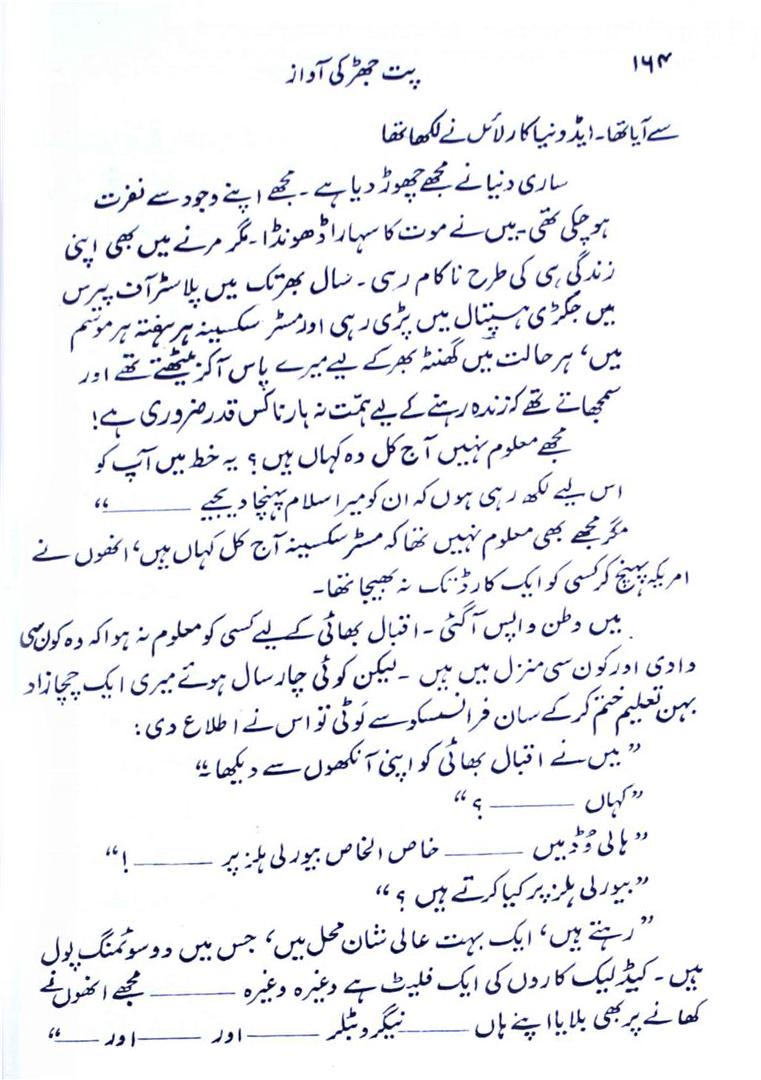 ۱۶۴
پت جھڑ کی آواز
سے آیا تھا۔ ایڈونیا کارلائل نے لکھا تھا
ساری دنیا نے مجھے چھوڑ دیا ہے۔ مجھے اپنے وجود سے نفرت
ہو چکی تھی۔ میں نے موت کا سہارا ڈھونڈا۔ مگر مرنے میں بھی اپنی
زندگی ہی کی طرح ناکام رہی۔ سال بھر تک میں پلاسٹر آف پیرس
میں جکڑی ہسپتال میں پڑی رہی اور مسٹر سکسینہ ہر ہفتہ ہر موسم
میں، ہر حالت میں گھنٹہ بھر کے لیے میرے پاس آکر بیٹھتے تھے اور
سمجھاتے تھے کہ زندہ رہنے کے لیے ہمّت نہ ہارنا کس قدر ضروری ہے!
مجھے معلوم نہیں آج کل وہ کہاں ہیں؟ یہ خط میں آپ کو
اس لیے لکھ رہی ہوں کہ ان کو میرا سلام پہنچا دیجیے ــــــــــ“
مگر مجھے بھی معلوم نہیں تھا کہ مسٹر سکسینہ آج کل کہاں ہیں، انھوں نے
امریکہ پہنچ کر کسی کو ایک کارڈ تک نہ بھیجا تھا۔
میں وطن واپس آگئی۔ اقبال بھائی کے لیے کسی کو معلوم نہ ہوا کہ وہ کون سی
وادی اور کون سی منزل میں ہیں۔ لیکن کوئی چار سال ہوئے میری ایک چچازاد
بہن تعلیم ختم کر کے سان فرانسسکو سے لَوٹی تو اس نے اطلاع دی:
”میں نے اقبال بھائی کو اپنی آنکھوں سے دیکھا۔“
”کہاں ــــــــــ؟“
”ہالی وُڈ میں ــــــــــ خاص الخاص بیورلی ہلز پر ــــــــــ!“
”بیورلی ہلز پر کیا کرتے ہیں؟“
”رہتے ہیں، ایک بہت عالی شان محل میں، جس میں دو سوئمنگ پول
ہیں۔ کیڈلیک کاروں کی ایک فلیٹ ہے وغیرہ وغیرہ ــــــــــ مجھے انھوں نے
کھانے پر بھی بلایا اپنے ہاں ــــــــــ نیگرو بٹلر ــــــــــ اور ــــــــــ اور ــــــــــ“